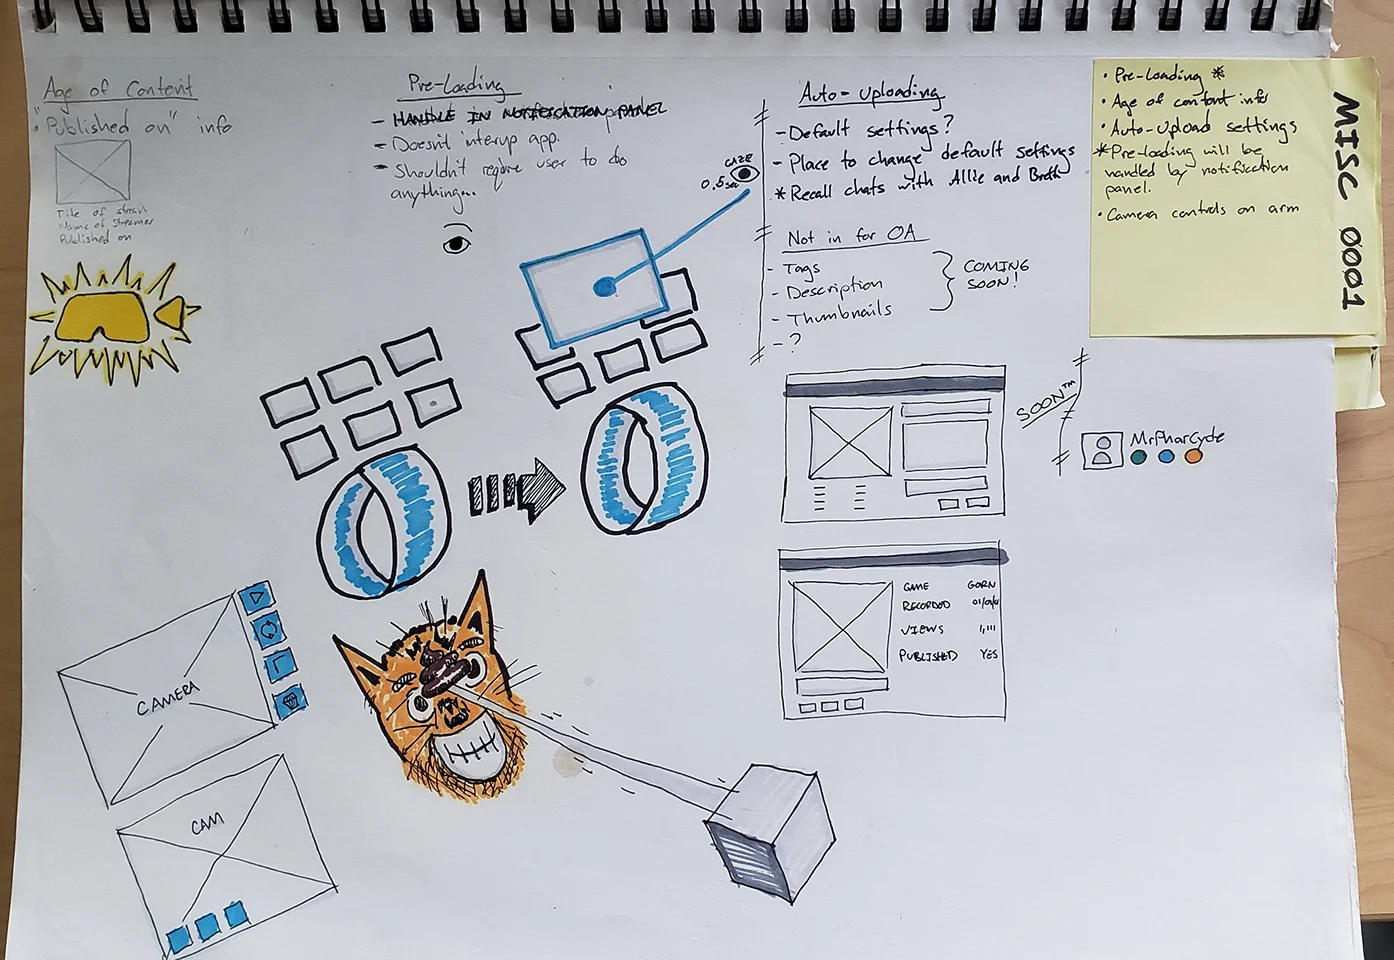 Age of Content
"Published on" info
Title of stream
Name of Streamer
Published on
Pre-Loading
- HANDLE IN NOTIFICATION PANEL
- Doesn't interup app.
- Shouldn't require user to do
anything...
GAZE
0.5sec
Auto-Uploading
- Default settings?
- Place to change default settings
* Recall chats with Allie and Breth
Not in for OA
- Tags
- Description
- Thumbnails
- ?
COMING
SOON!
• Pre-Loading *
• Age of content info
• Auto-Upload settings
* Pre-loading will be
handled by notification
panel.
• Camera controls on arm
MISC 0001
SOON™
MrPharCyde
CAMERA
CAM
GAME GORN
RECORDED
VIEWS 1,111
PUBLISHED YES